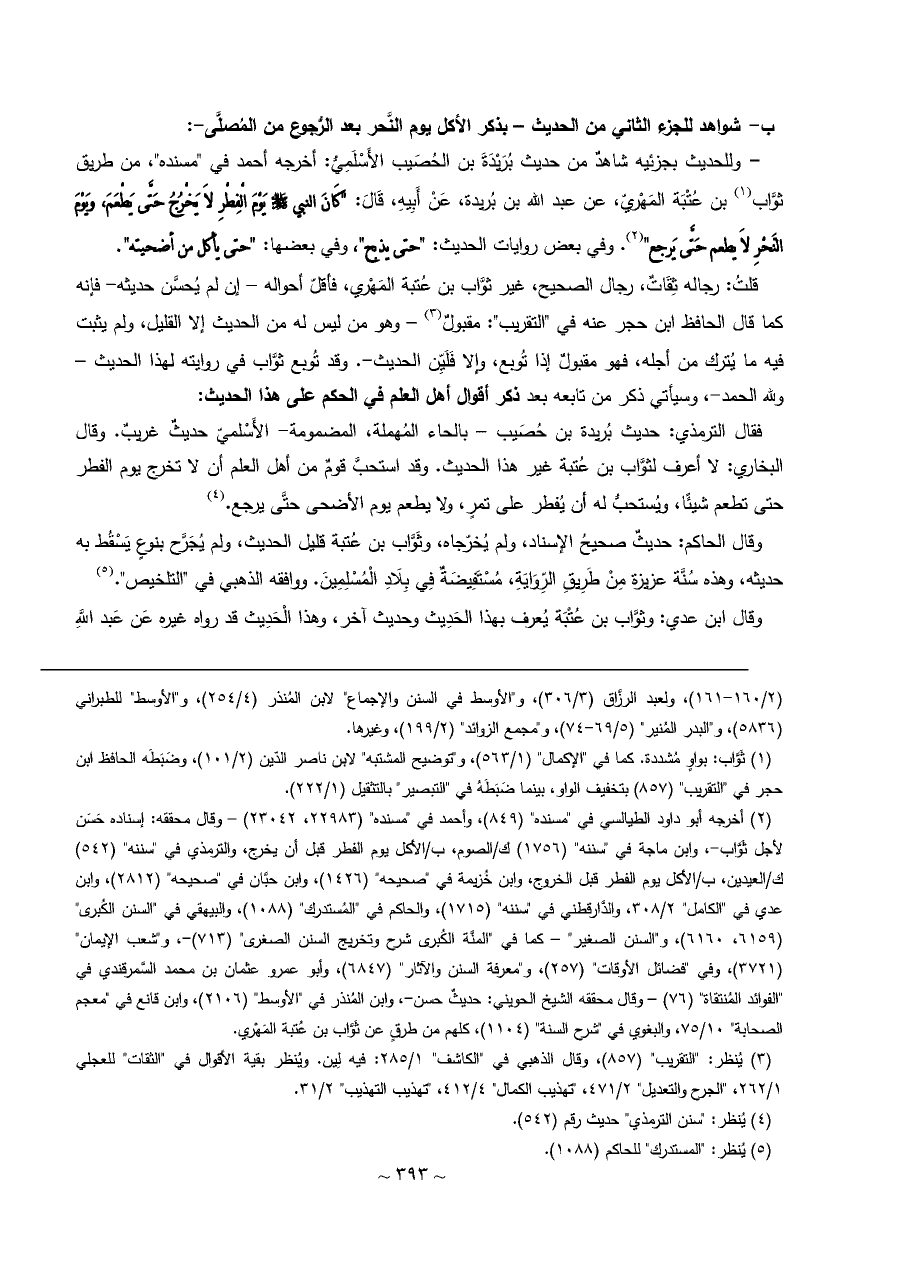 ب- شواهد للجزء الثاني من الحديث – بذكر الأكل يوم النَّحر بعد الرُّجوع من المُصلَّى-:
– وللحديث بجزئيه شاهدٌ من حديث بُرَيْدَةَ بن الحُصَيب الأَسْلَمِيُّ: أخرجه أحمد في "مسنده"، من طريق
ثوَّاب(١) بن عُتْبَة المَهْريّ، عن عبد الله بن بُريدة، عَنْ أَبِيهِ، قَالَ: "كَانَ النبي ﷺ يَوْمَ الْفِطْرِ لاَ يَخْرُجُ حَتَّى يَطْعَمَ، وَيَوْمَ
النَّحْرِ لاَ يطعم حَتَّى يَرجع"(٢). وفي بعض روايات الحديث: "حتى يذبح"، وفي بعضها: "حتى يأكل من أضحيته".
قلتُ: رجاله ثِقَاتٌ، رجال الصحيح، غير ثوَّاب بن عُتبة المَهْري، فأقلّ أحواله – إن لم يُحسَّن حديثه- فإنه
كما قال الحافظ ابن حجر عنه في "التقريب": مقبولٌ(٣) – وهو من ليس له من الحديث إلا القليل، ولم يثبت
فيه ما يُترك من أجله، فهو مقبولٌ إذا تُوبع، وإلا فَلَيِّن الحديث-. وقد تُوبع ثوَّاب في روايته لهذا الحديث –
ولله الحمد-، وسيأتي ذكر من تابعه بعد ذكر أقوال أهل العلم في الحكم على هذا الحديث:
فقال الترمذي: حديث بُريدة بن حُصَيب – بالحاء المُهملة، المضمومة- الأَسْلميّ حديثٌ غريبٌ. وقال
البخاري: لا أعرف لثوَّاب بن عُتبة غير هذا الحديث. وقد استحبَّ قومٌ من أهل العلم أن لا تخرج يوم الفطر
حتى تطعم شيئًا، ويُستحبُّ له أن يُفطر على تمرٍ، ولا يطعم يوم الأضحى حتَّى يرجع.(٤)
وقال الحاكم: حديثٌ صحيحُ الإسناد، ولم يُخرّجاه، وثَوَّاب بن عُتبة قليل الحديث، ولم يُجَرَّح بنوعٍ يَسْقُط به
حديثه، وهذه سُنَّة عزيزة مِنْ طَرِيقِ الرِّوَايَةِ، مُسْتَفِيضَةٌ فِي بِلَادِ الْمُسْلِمِينَ. ووافقه الذهبي في "التلخيص".(٥)
وقال ابن عدي: وثوَّاب بن عُتْبَة يُعرف بهذا الحَدِيث وحديث آخر، وهذا الْحَدِيث قد رواه غيره عَن عَبد اللَّهِ
(١٦٠/٢-١٦١)، ولعبد الرزَّاق (٣٠٦/٣)، و"الأوسط في السنن والإجماع" لابن المُنذر (٢٥٤/٤)، و"الأوسط" للطبراني
(٥٨٣٦)، و"البدر المُنير" (٦٩/٥-٧٤)، و"مجمع الزوائد" (١٩٩/٢)، وغيرها.
(١) ثَوَّاب: بواوٍ مُشددة. كما في "الإكمال" (٥٦٣/١)، و"توضيح المشتبه" لابن ناصر الدّين (١٠١/٢)، وضَبَطَه الحافظ ابن
حجر في "التقريب" (٨٥٧) بتخفيف الواو، بينما ضَبَطَهُ في "التبصير" بالتثقيل (٢٢٢/١).
(٢) أخرجه أبو داود الطيالسي في "مسنده" (٨٤٩)، وأحمد في "مسنده" (٢٢٩٨٣، ٢٣٠٤٢) – وقال محققه: إسناده حَسَن
لأجل ثوَّاب-، وابن ماجة في "سننه" (١٧٥٦) ك/الصوم، ب/الأكل يوم الفطر قبل أن يخرج، والترمذي في "سننه" (٥٤٢)
ك/العيدين، ب/الأكل يوم الفطر قبل الخروج، وابن خُزيمة في "صحيحه" (١٤٢٦)، وابن حبَّان في "صحيحه" (٢٨١٢)، وابن
عدي في "الكامل" ٣٠٨/٢، والدَّارقطني في "سننه" (١٧١٥)، والحاكم في "المُستدرك" (١٠٨٨)، والبيهقي في "السنن الكُبرى"
(٦١٥٩، ٦١٦٠)، و"السنن الصغير" – كما في "المنَّة الكُبرى شرح وتخريج السنن الصغرى" (٧١٣)-، و"شعب الإيمان"
(٣٧٢١)، وفي "فضائل الأوقات" (٢٥٧)، و"معرفة السنن والآثار" (٦٨٤٧)، وأبو عمرو عثمان بن محمد السَّمرقندي في
"الفوائد المُنتقاة" (٧٦) – وقال محققه الشيخ الحويني: حديثٌ حسن-، وابن المُنذر في "الأوسط" (٢١٠٦)، وابن قانع في "معجم
الصحابة" ٧٥/١٠، والبغوي في "شرح السنة" (١١٠٤)، كلهم من طرقٍ عن ثوَّاب بن عُتبة المَهْري.
(٣) يُنظر: "التقريب" (٨٥٧)، وقال الذهبي في "الكاشف" ٢٨٥/١: فيه لِين. ويُنظر بقية الأقوال في "الثقات" للعجلي
٢٦٢/١، "الجرح والتعديل" ٤٧١/٢، "تهذيب الكمال" ٤١٢/٤، "تهذيب التهذيب" ٣١/٢.
(٤) يُنظر: "سنن الترمذي" حديث رقم (٥٤٢).
(٥) يُنظر: "المستدرك" للحاكم (١٠٨٨).
~ ٣٩٣ ~